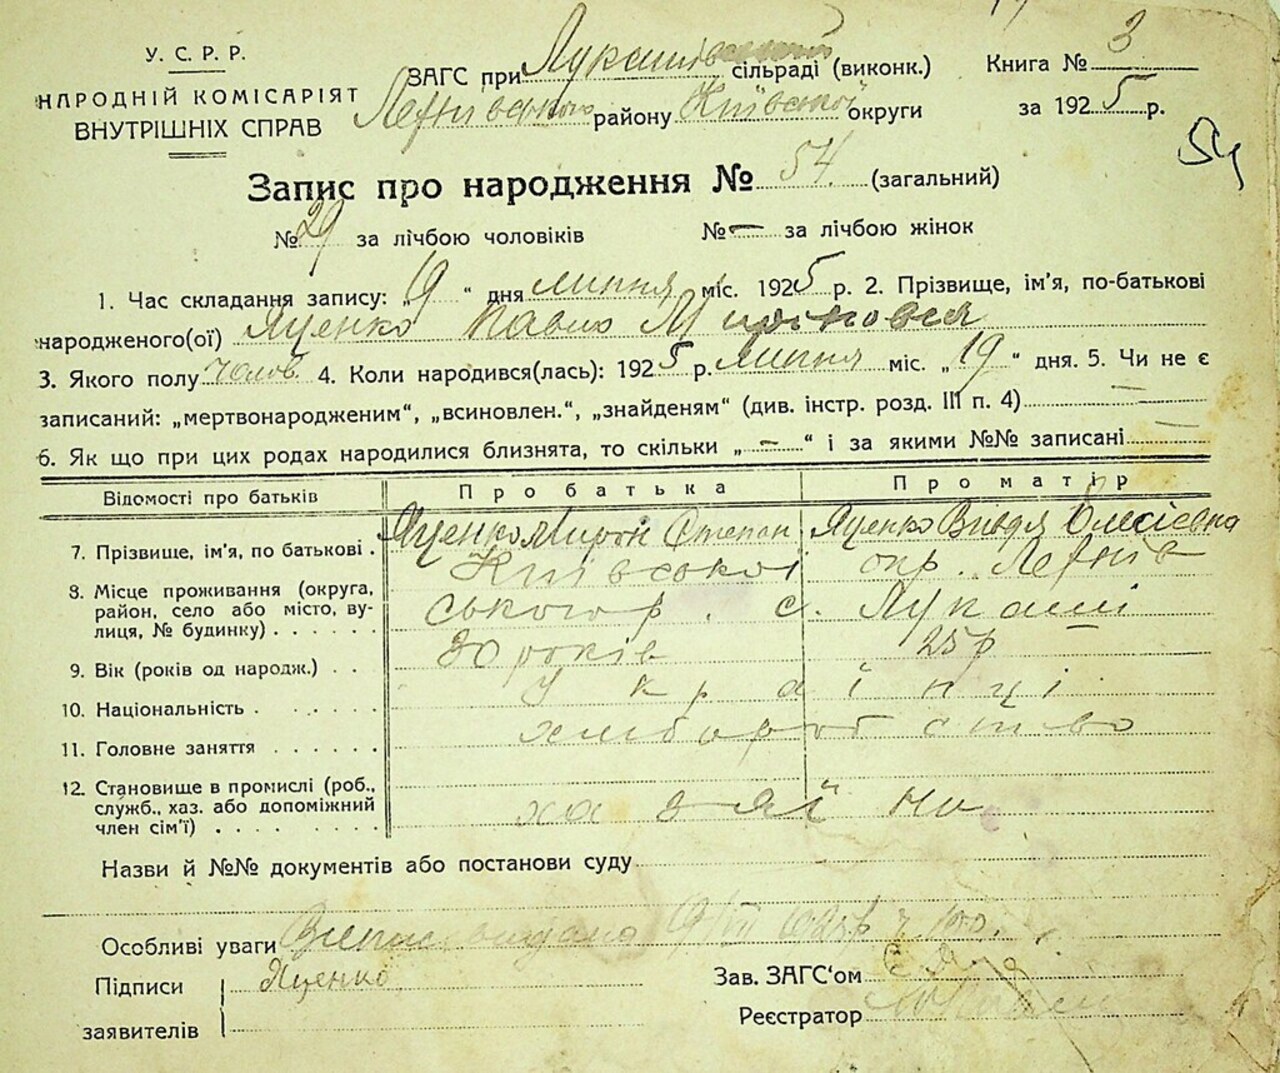 У. С. Р. Р.
НАРОДНІЙ КОМІСАРІЯТ
ВНУТРІШНІХ СПРАВ
ЗАГС при сільраді (виконк.)
району Київської округи
Книга № 3
за 1925 р.
54
Запис про народження № 54. (загальний)
№ 29 за лічбою чоловіків № — за лічбою жінок
1. Час складання запису: „19“ дня липня міс. 1925 р. 2. Прізвище, ім'я, по-батькові
народженого(ої) Яценко Павло Миронович
3. Якого полу чолов. 4. Коли народився(лась): 1925 р. липня міс. „19“ дня. 5. Чи не є
записаний: „мертвонародженим“, „всиновлен.“, „знайденям“ (див. інстр. розд. III п. 4) —
6. Як що при цих родах народилися близнята, то скільки „—“ і за якими №№ записані —
Відомості про батьків Про батька Про матір
7. Прізвище, ім'я, по батькові . Яценко Мирон Степан Яценко Олексіевна
8. Місце проживання (округа, Київської окр.
район, село або місто, ву- ського р. с. Лукаші
лиця, № будинку) . . . . . .
9. Вік (років од народж.) . . 30 років 25 р
10. Національність . . . . . . Українці
11. Головне заняття . . . . . . хліборобство
12. Становище в промислі (роб.,
служб., хаз. або допоміжний
член сім'ї) . . . . . . . . .
Назви й №№ документів або постанови суду
Особливі уваги
Підписи Яценко
заявителів
Зав. ЗАГС‘ом
Реєстратор